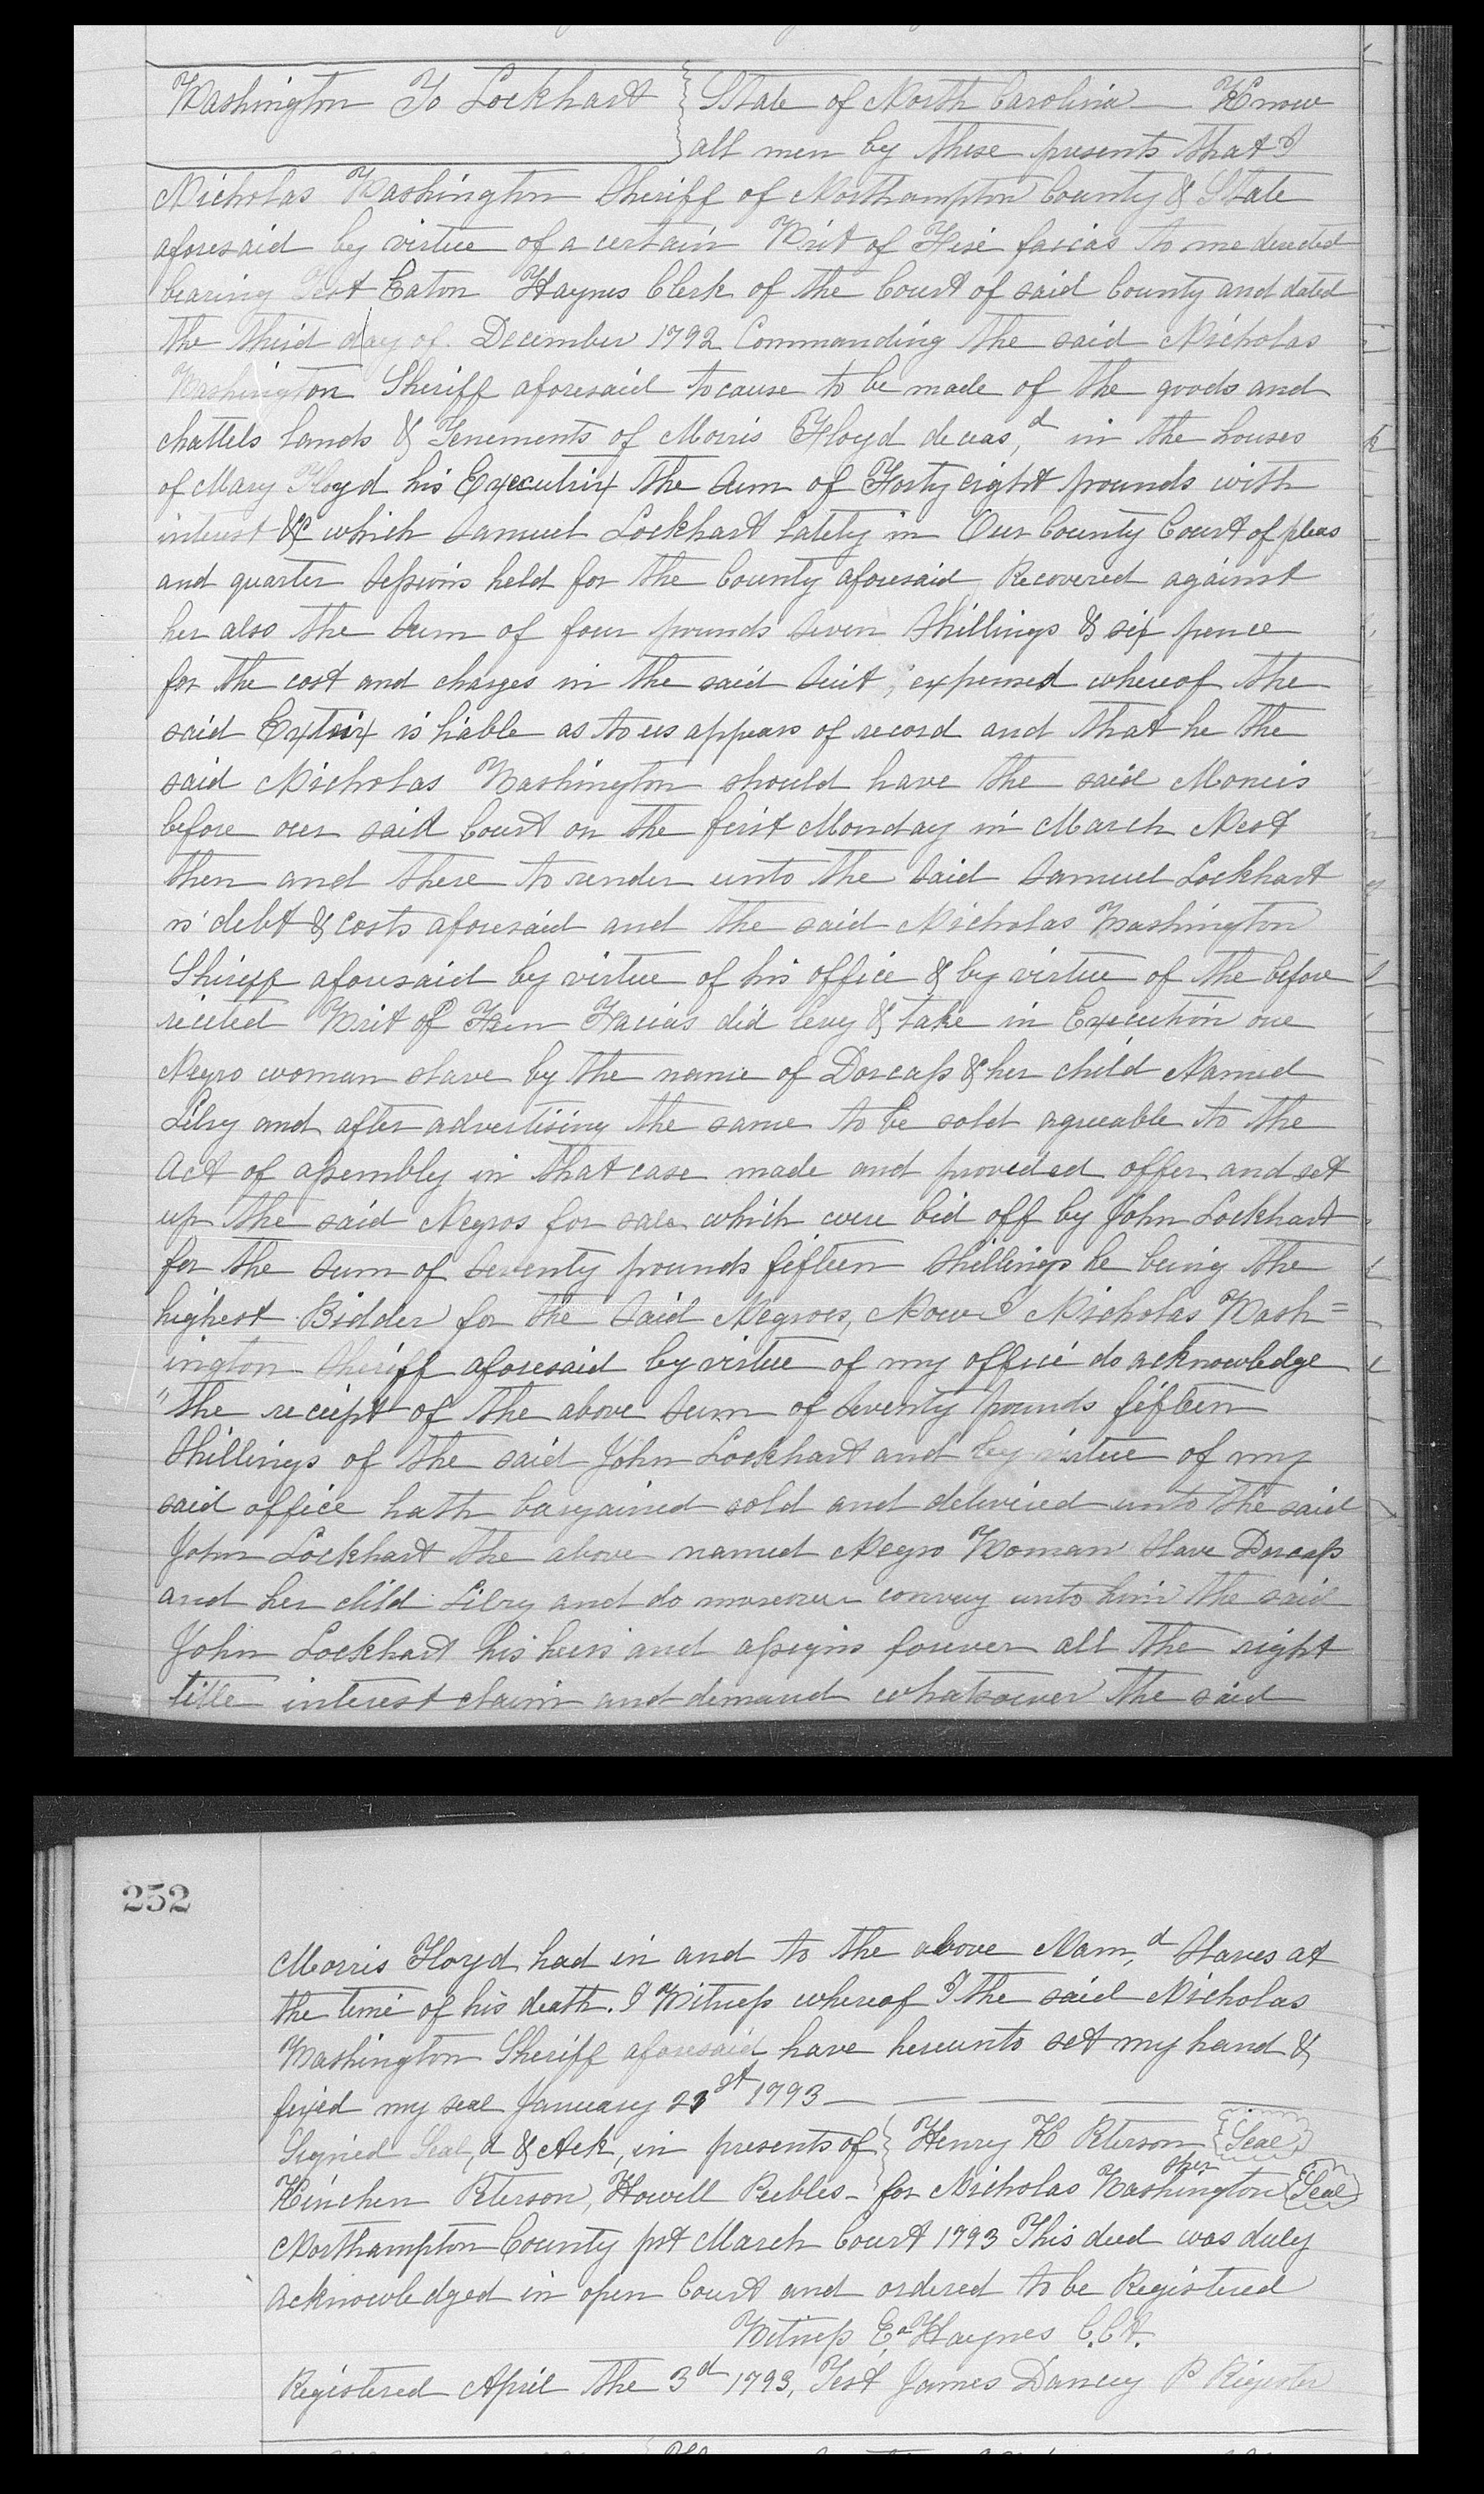 Washington To Lockhart State of North Carolina — Know
all men by these presents that I
Nicholas Washington Sheriff of Northampton County & State
aforesaid by virtue of a certain Writ of Fise facias to me directed
bearing Test Eaton Haynes Clerk of the Court of said County and dated
the third day of December 1792 Commanding the said Nicholas
Washington Sheriff aforesaid to cause to be made of the goods and
chattels Lands & Tenements of Morris Floyd deceas,d in the houses
of Mary Floyd his Executrix the Sum of Forty eight pounds with
interest &c which Samuel Lockhart Lately in Our County Court of pleas
and quarter Sessions held for the County aforesaid Recovered against
her also the Sum of four pounds Seven Shillings & six pence
for the cost and charges in the said Suit, expensed whereof the
said Extrix is liable as to us appears of record and that he the
said Nicholas Washington should have the said Moneis
before our said Court on the first Monday in March Next
then and there to render unto the Said Samuel Lockhart
is debt & costs aforesaid and the said Nicholas Washington
Sheriff aforesaid by virtue of his office & by virtue of the before
recited Writ of Facias did levy & take in Execution one
Negro woman slave by the name of Dorcass & her child Named
Libry and after advertising the same to be sold agreeable to the
act of assembly in that case made and provided offer and set
up the said Negros for sale which were bid off by John Lockhart
for the Sum of Seventy pounds fifteen Shillings he being the
highest Bidder for the Said Negroes, Now I Nicholas Wash=
ington Sheriff aforesaid by virtue of my office do acknowledge
"the receipt of the above Sum of Seventy pounds fifteen
Shillings of the said John Lockhart and by virtue of my
said office hath bargained sold and delivered unto the said
John Lockhart the above named Negro Woman Slave Dorcass
and her child Libry and do moreover convey unto him the said
John Lockhart his heirs and assigns forever all the right
title interest claim and demand whatsoever the said
252
Morris Floyd had in and to the above Nam,d Slaves at
the time of his death. I Witness whereof I the said Nicholas
Washington Sheriff aforesaid have hereunto set my hand &
fixed my seal January 21st 1793 —
Signed Seal,d & Ack, in presents of Henry K Peterson Seal
Kinchen Peterson, Howell Peebles - for Nicholas Washington sher Seal
Northampton County pst March Court 1793 This deed was duly
acknowledged in open Court and ordered to be Registered
Witness Ea. Haynes C.Ct.
Registered April the 3d 1793, Test James Dancy P Rigester